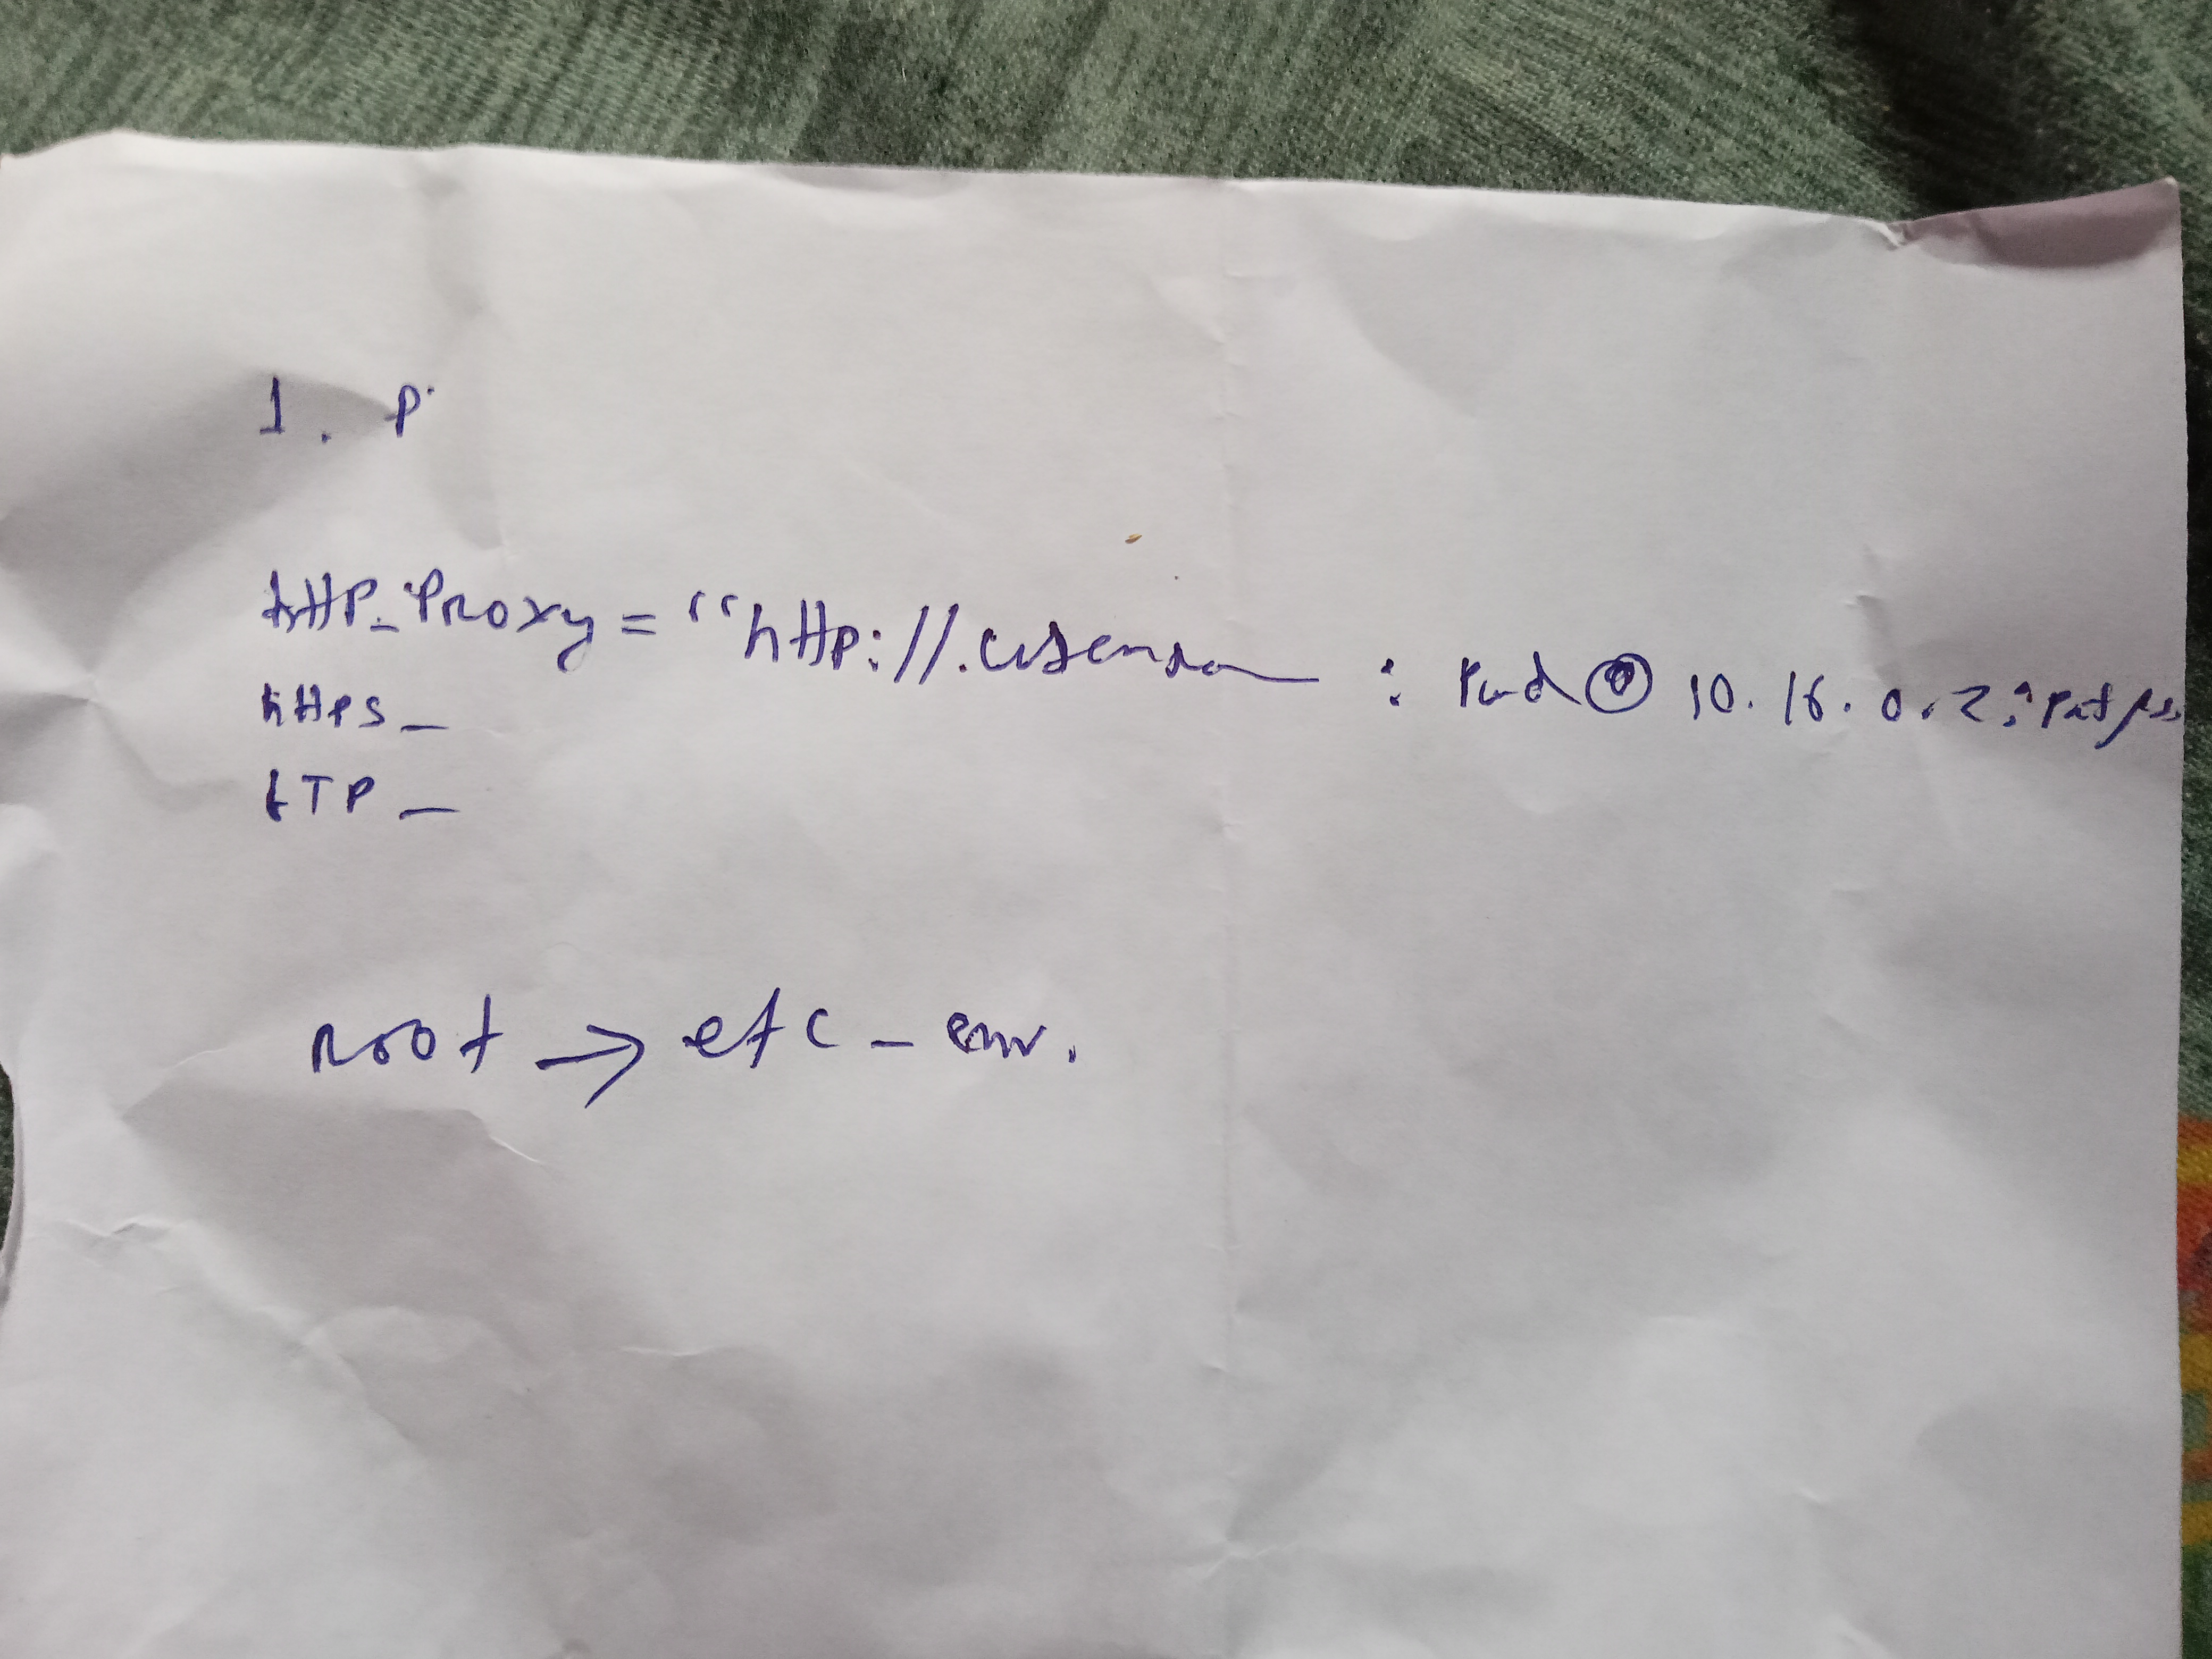 1. P
http_Proxy = "http://.usernam : Pwd @ 10.16.0.2:
https_
fTP_
root → etc - env.